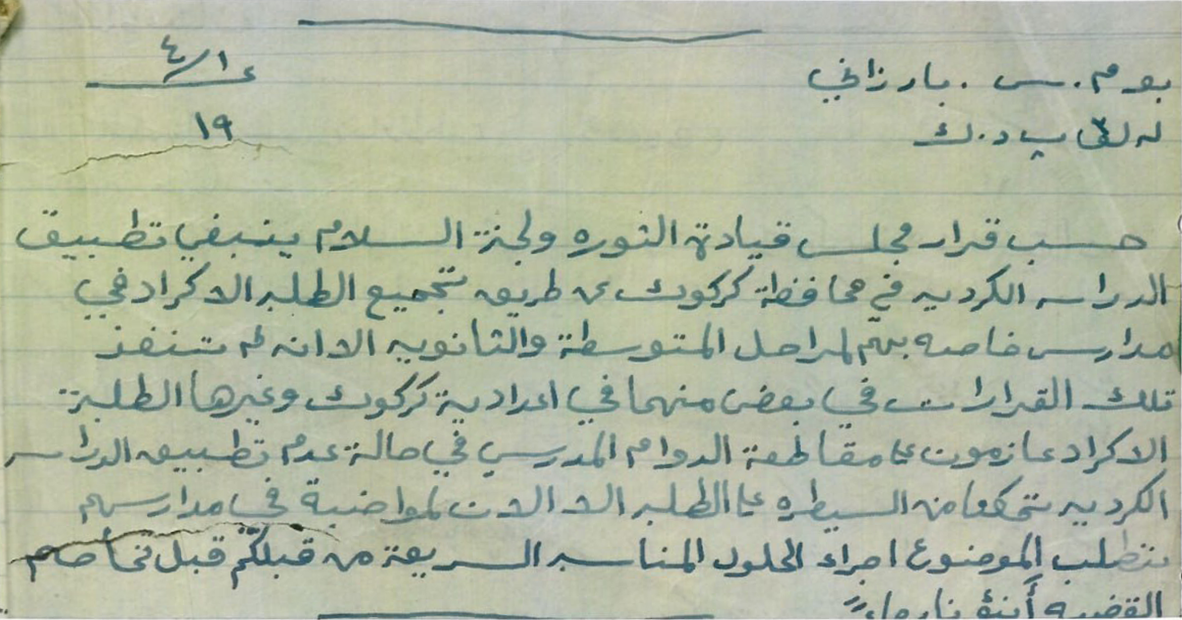 بو م. س. بارزانی
٤/١
له لقی پ د. ك
١٩
حسب قرار مجلس قيادة الثوره ولجنة السلام ينبغي تطبيق
الدراسه الكرديه في محافظة كركوك عن طريق تجميع الطلبه الاكراد في
مدارس خاصه بهم لمراحل المتوسطة والثانويه الا انه لم تنفذ
تلك القرارات في بعض منهما في اعدادية كركوك وغيرها الطلبة
الاكراد عازمون على مقاطعة الدوام المدرسي في حالة عدم تطبيق الدراسه
الكرديه من السيطره على الطلبه الا الان لمواضبة في مدارسهم
تتطلب الموضوع اجراء الحلول المناسبه السريعة من قبلكم قبل
القضيه